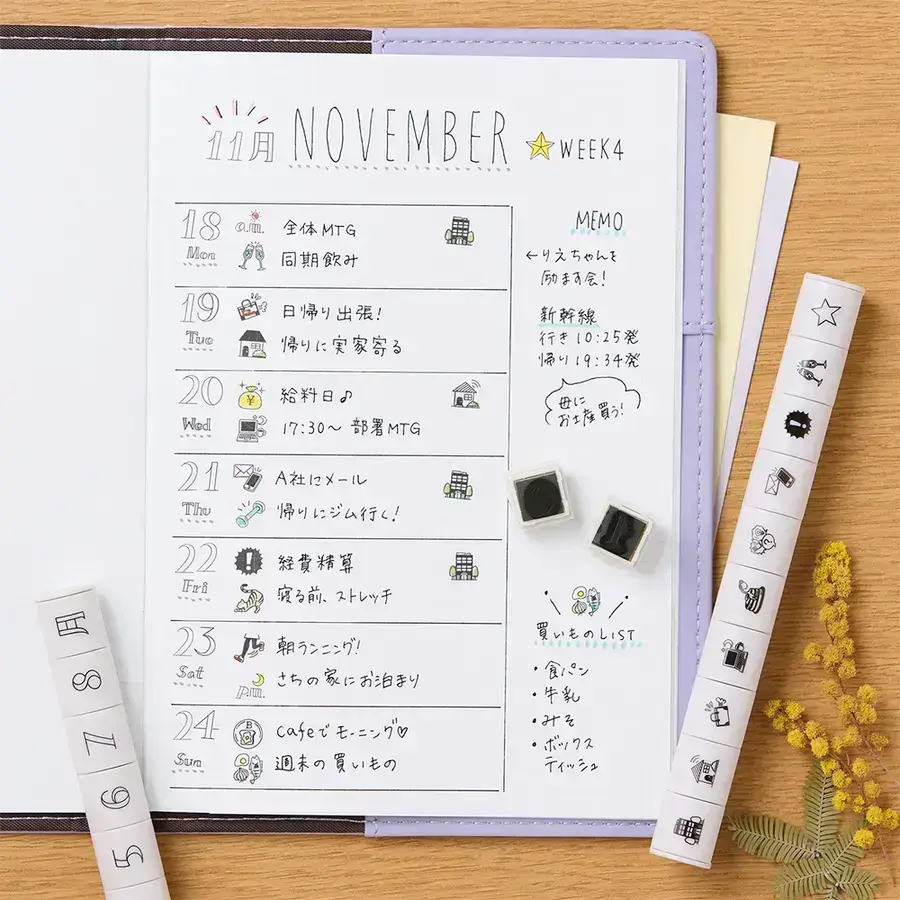 11月 NOVEMBER WEEK4
18 Mon
a.m. 全体MTG
同期飲み
19 Tue
日帰り出張!
帰りに実家寄る
20 Wed
¥ 給料日♪
17:30～ 部署MTG
21 Thu
A社にメール
帰りにジム行く!
22 Fri
! 経費精算
寝る前、ストレッチ
23 Sat
朝ランニング!
p.m. さちの家にお泊まり
24 Sun
B Cafeでモーニング♡
週末の買いもの
MEMO
←りえちゃんを
励ます会!
新幹線
行き 10:25発
帰り 19:34発
母に
お土産買う!
買いものLIST
・食パン
・牛乳
・みそ
・ボックス
ティッシュ
月
8
7
6
5
!